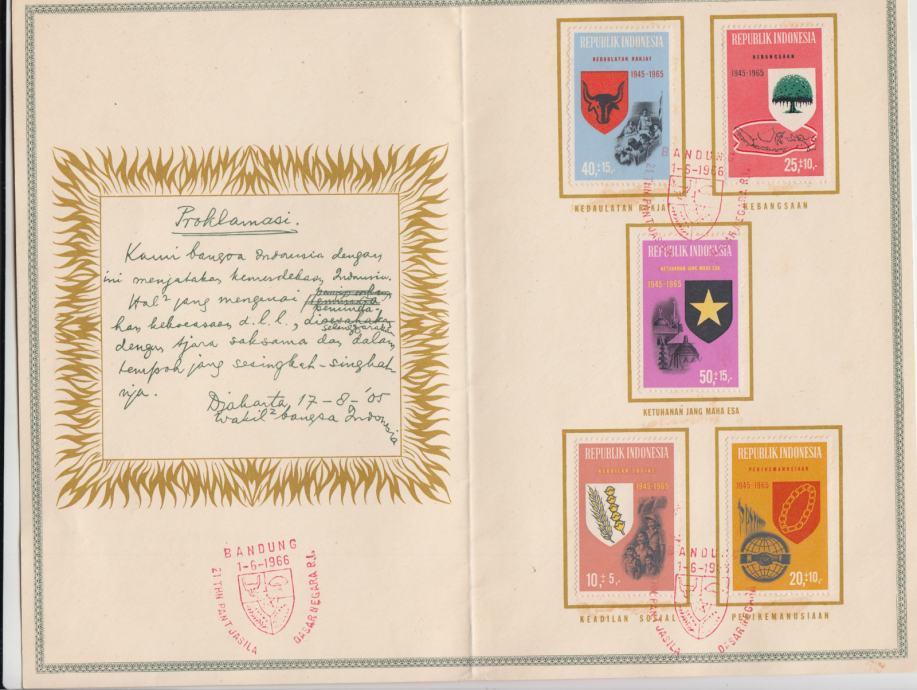 Proklamasi.
Kami bangsa Indonesia dengan
ini menjatakan kemerdekaan Indonesia.
Hal² jang mengenai
peminda-
han kekoeasaan d.l.l., dioesahakan
diselenggarakan
dengan tjara saksama dan dalam
tempoh jang sesingkat-singkat-
nja.
Djakarta, 17-8-'05
Wakil² bangsa Indonesia
BANDUNG
1-6-1966
21 THN PANTJASILA
DASAR NEGARA R.I.
REPUBLIK INDONESIA
KEDAULATAN RAKJAT
1945-1965
40,+15,-
KEDAULATAN RAKJAT
REPUBLIK INDONESIA
KEBANGSAAN
1945-1965
25,+10,-
KEBANGSAAN
BANDUNG
1-6-1966
21 THN PANTJASILA
DASAR NEGARA R.I.
REPUBLIK INDONESIA
KETUHANAN JANG MAHA ESA
1945-1965
50,+15,-
KETUHANAN JANG MAHA ESA
REPUBLIK INDONESIA
KEADILAN SOSIAL
1945-1965
10,+5,-
KEADILAN SOSIAL
REPUBLIK INDONESIA
PERIKEMANUSIAAN
1945-1965
20,+10,-
PERIKEMANUSIAAN
BANDUNG
1-6-1966
21 THN PANTJASILA
DASAR NEGARA R.I.